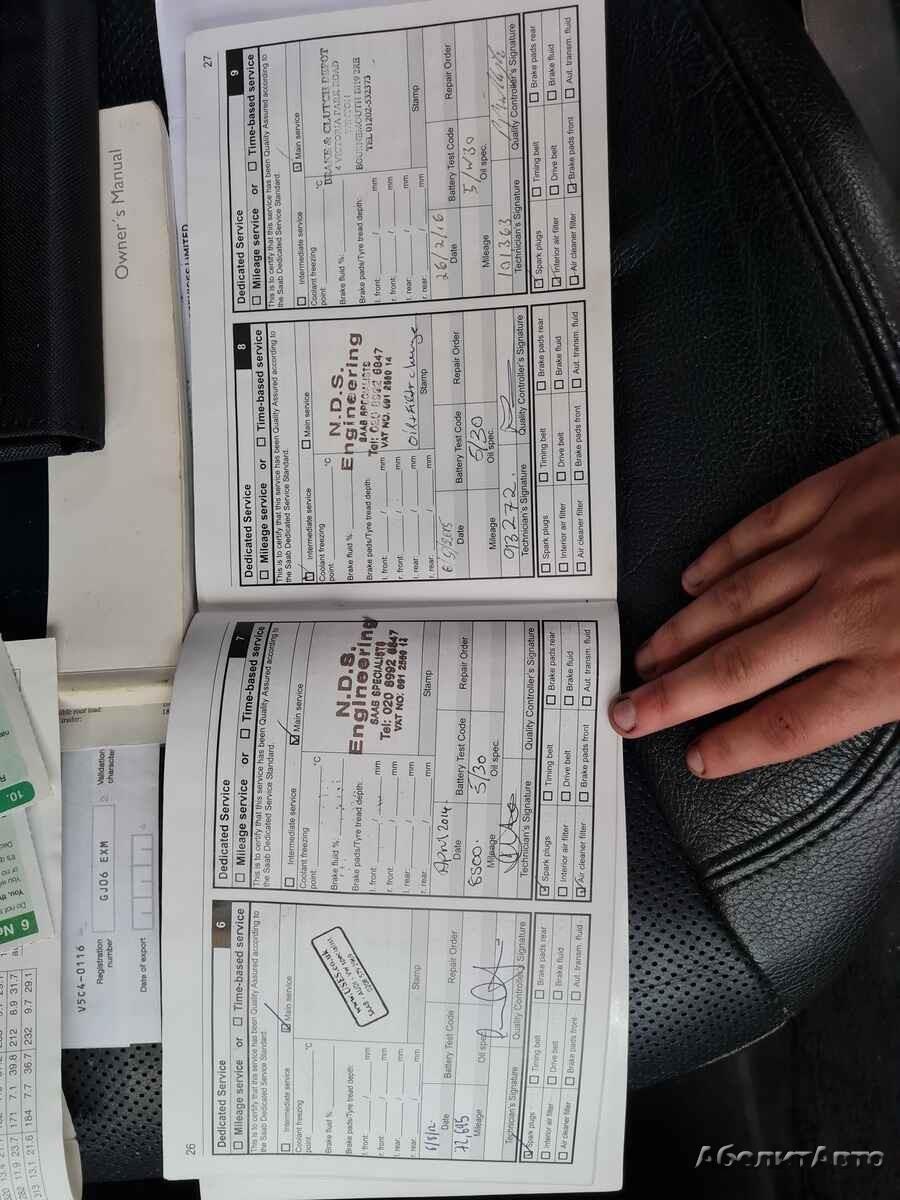 26
Dedicated Service
6
Mileage service or Time-based service
This is to certify that this service has been Quality Assured according to
the Saab Dedicated Service Standard.
Intermediate service
Main service
Coolant freezing
point:
°C
Brake fluid %:
Brake pads/Tyre tread depth:
l. front: / mm
r. front: / mm
l. rear: / mm
r. rear: / mm
Stamp
6/8/12
Date
Battery Test Code
Repair Order
72,695
Mileage
Oil spec.
Technician's Signature
Quality Controller's Signature
Spark plugs
Timing belt
Brake pads rear
Interior air filter
Drive belt
Brake fluid
Air cleaner filter
Brake pads front
Aut. transm. fluid
Dedicated Service
7
Mileage service or Time-based service
This is to certify that this service has been Quality Assured according to
the Saab Dedicated Service Standard.
Intermediate service
Main service
Coolant freezing
point:
°C
Brake fluid %:
Brake pads/Tyre tread depth:
l. front: / mm
r. front: / mm
l. rear: / mm
r. rear: / mm
N.D.S.
Engineering
SAAB SPECIALISTS
Tel: 020 8992 6847
VAT NO: 691 2580 14
Stamp
April 2014
Date
Battery Test Code
Repair Order
8500.
5/30
Mileage
Oil spec.
Technician's Signature
Quality Controller's Signature
Spark plugs
Timing belt
Brake pads rear
Interior air filter
Drive belt
Brake fluid
Air cleaner filter
Brake pads front
Aut. transm. fluid
Dedicated Service
8
Mileage service or Time-based service
This is to certify that this service has been Quality Assured according to
the Saab Dedicated Service Standard.
Intermediate service
Main service
Coolant freezing
point:
°C
Brake fluid %:
Brake pads/Tyre tread depth:
l. front: / mm
r. front: / mm
l. rear: / mm
r. rear: / mm
N.D.S.
Engineering
SAAB SPECIALISTS
Tel: 020 8992 6847
VAT NO: 691 2580 14
Oil & Filter change
Stamp
6/5/2015
Date
Battery Test Code
Repair Order
5/30
Mileage
Oil spec.
93272.
Technician's Signature
Quality Controller's Signature
Spark plugs
Timing belt
Brake pads rear
Interior air filter
Drive belt
Brake fluid
Air cleaner filter
Brake pads front
Aut. transm. fluid
27
Dedicated Service
9
Mileage service or Time-based service
This is to certify that this service has been Quality Assured according to
the Saab Dedicated Service Standard.
Intermediate service
Main service
Coolant freezing
point:
°C
Brake fluid %:
Brake pads/Tyre tread depth:
l. front: / mm
r. front: / mm
l. rear: / mm
r. rear: / mm
BRAKE & CLUTCH DEPOT
4 VICTORIA PARK ROAD
BOURNEMOUTH BH9 2RB
TEL 01202-532373
Stamp
26/2/16
Date
Battery Test Code
Repair Order
5/W30
Mileage
Oil spec.
101363
Technician's Signature
Quality Controller's Signature
Spark plugs
Timing belt
Brake pads rear
Interior air filter
Drive belt
Brake fluid
Air cleaner filter
Brake pads front
Aut. transm. fluid
Owner's Manual
V5C4-0116
Registration
number
GJ06 EXM
Validation
character
Date of export
10.
АболитАвто